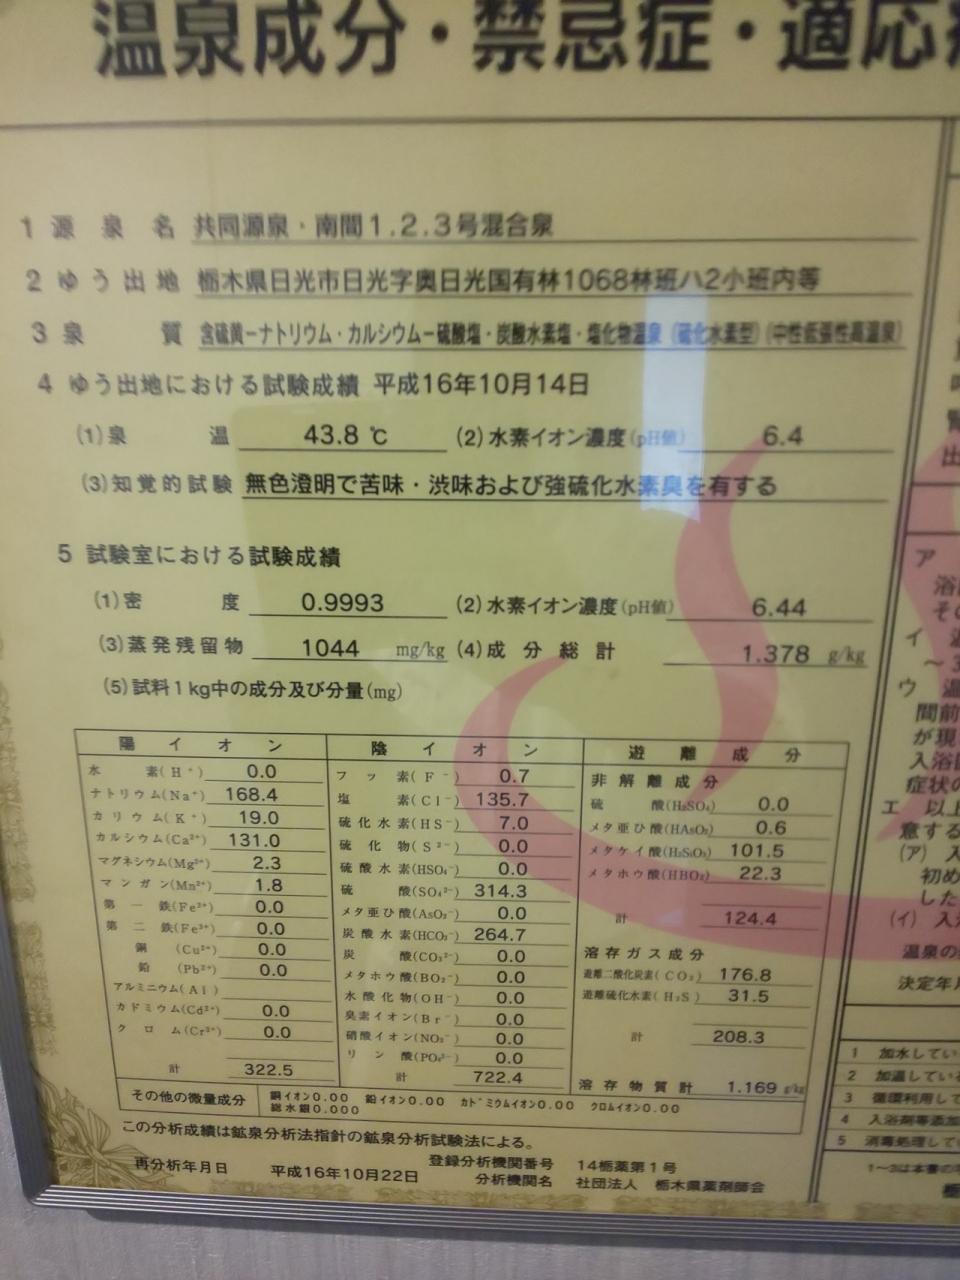 温泉成分・禁忌症・適応
1 源泉名 共同源泉・南間1.2.3号混合泉
2 ゆう出地 栃木県日光市日光字奥日光国有林1068林班ハ2小班内等
3 泉質 含硫黄ーナトリウム・カルシウムー硫酸塩・炭酸水素塩・塩化物温泉(硫化水素型)(中性低張性高温泉)
4 ゆう出地における試験成績 平成16年10月14日
(1)泉温 43.8℃ (2)水素イオン濃度(pH値) 6.4
(3)知覚的試験 無色澄明で苦味・渋味および強硫化水素臭を有する
5 試験室における試験成績
(1)密度 0.9993 (2)水素イオン濃度(pH値) 6.44
(3)蒸発残留物 1044 mg/kg (4)成分総計 1.378 g/kg
(5)試料1kg中の成分及び分量(mg)
陽イオン
水素(H⁺) 0.0
ナトリウム(Na⁺) 168.4
カリウム(K⁺) 19.0
カルシウム(Ca²⁺) 131.0
マグネシウム(Mg²⁺) 2.3
マンガン(Mn²⁺) 1.8
第一鉄(Fe²⁺) 0.0
第二鉄(Fe³⁺) 0.0
銅(Cu²⁺) 0.0
鉛(Pb²⁺) 0.0
アルミニウム(Al)
カドミウム(Cd²⁺) 0.0
クロム(Cr³⁺) 0.0
計 322.5
陰イオン
フッ素(F⁻) 0.7
塩素(Cl⁻) 135.7
硫化水素(HS⁻) 7.0
硫化物(S²⁻) 0.0
硫酸水素(HSO₄⁻) 0.0
硫酸(SO₄²⁻) 314.3
メタ亜ひ酸(AsO₂⁻) 0.0
炭酸水素(HCO₃⁻) 264.7
炭酸(CO₃²⁻) 0.0
メタホウ酸(BO₂⁻) 0.0
水酸化物(OH⁻) 0.0
臭素イオン(Br⁻) 0.0
硝酸イオン(NO₃⁻) 0.0
リン酸(PO₄³⁻) 0.0
計 722.4
遊離成分
非解離成分
硫酸(H₂SO₄) 0.0
メタ亜ひ酸(HAsO₂) 0.6
メタケイ酸(H₂SiO₃) 101.5
メタホウ酸(HBO₂) 22.3
計 124.4
溶存ガス成分
遊離二酸化炭素(CO₂) 176.8
遊離硫化水素(H₂S) 31.5
計 208.3
溶存物質計 1.169 g/kg
その他の微量成分 銅イオン0.00 鉛イオン0.00 カドミウムイオン0.00 クロムイオン0.00
総水銀0.000
この分析成績は鉱泉分析法指針の鉱泉分析試験法による。
再分析年月日 平成16年10月22日
登録分析機関番号 14栃薬第1号
分析機関名 社団法人 栃木県薬剤師会
出
ア
浴
その
イ 温
～3
ウ 温
間前
が現
入浴
症状の
エ 以上
意する
(ア) 入
初め
した
(イ) 入
温泉の
決定年
1 加水してい
2 加温している
3 循環利用して
4 入浴剤等添加
5 消毒処理してい
1～3は本書の
栃